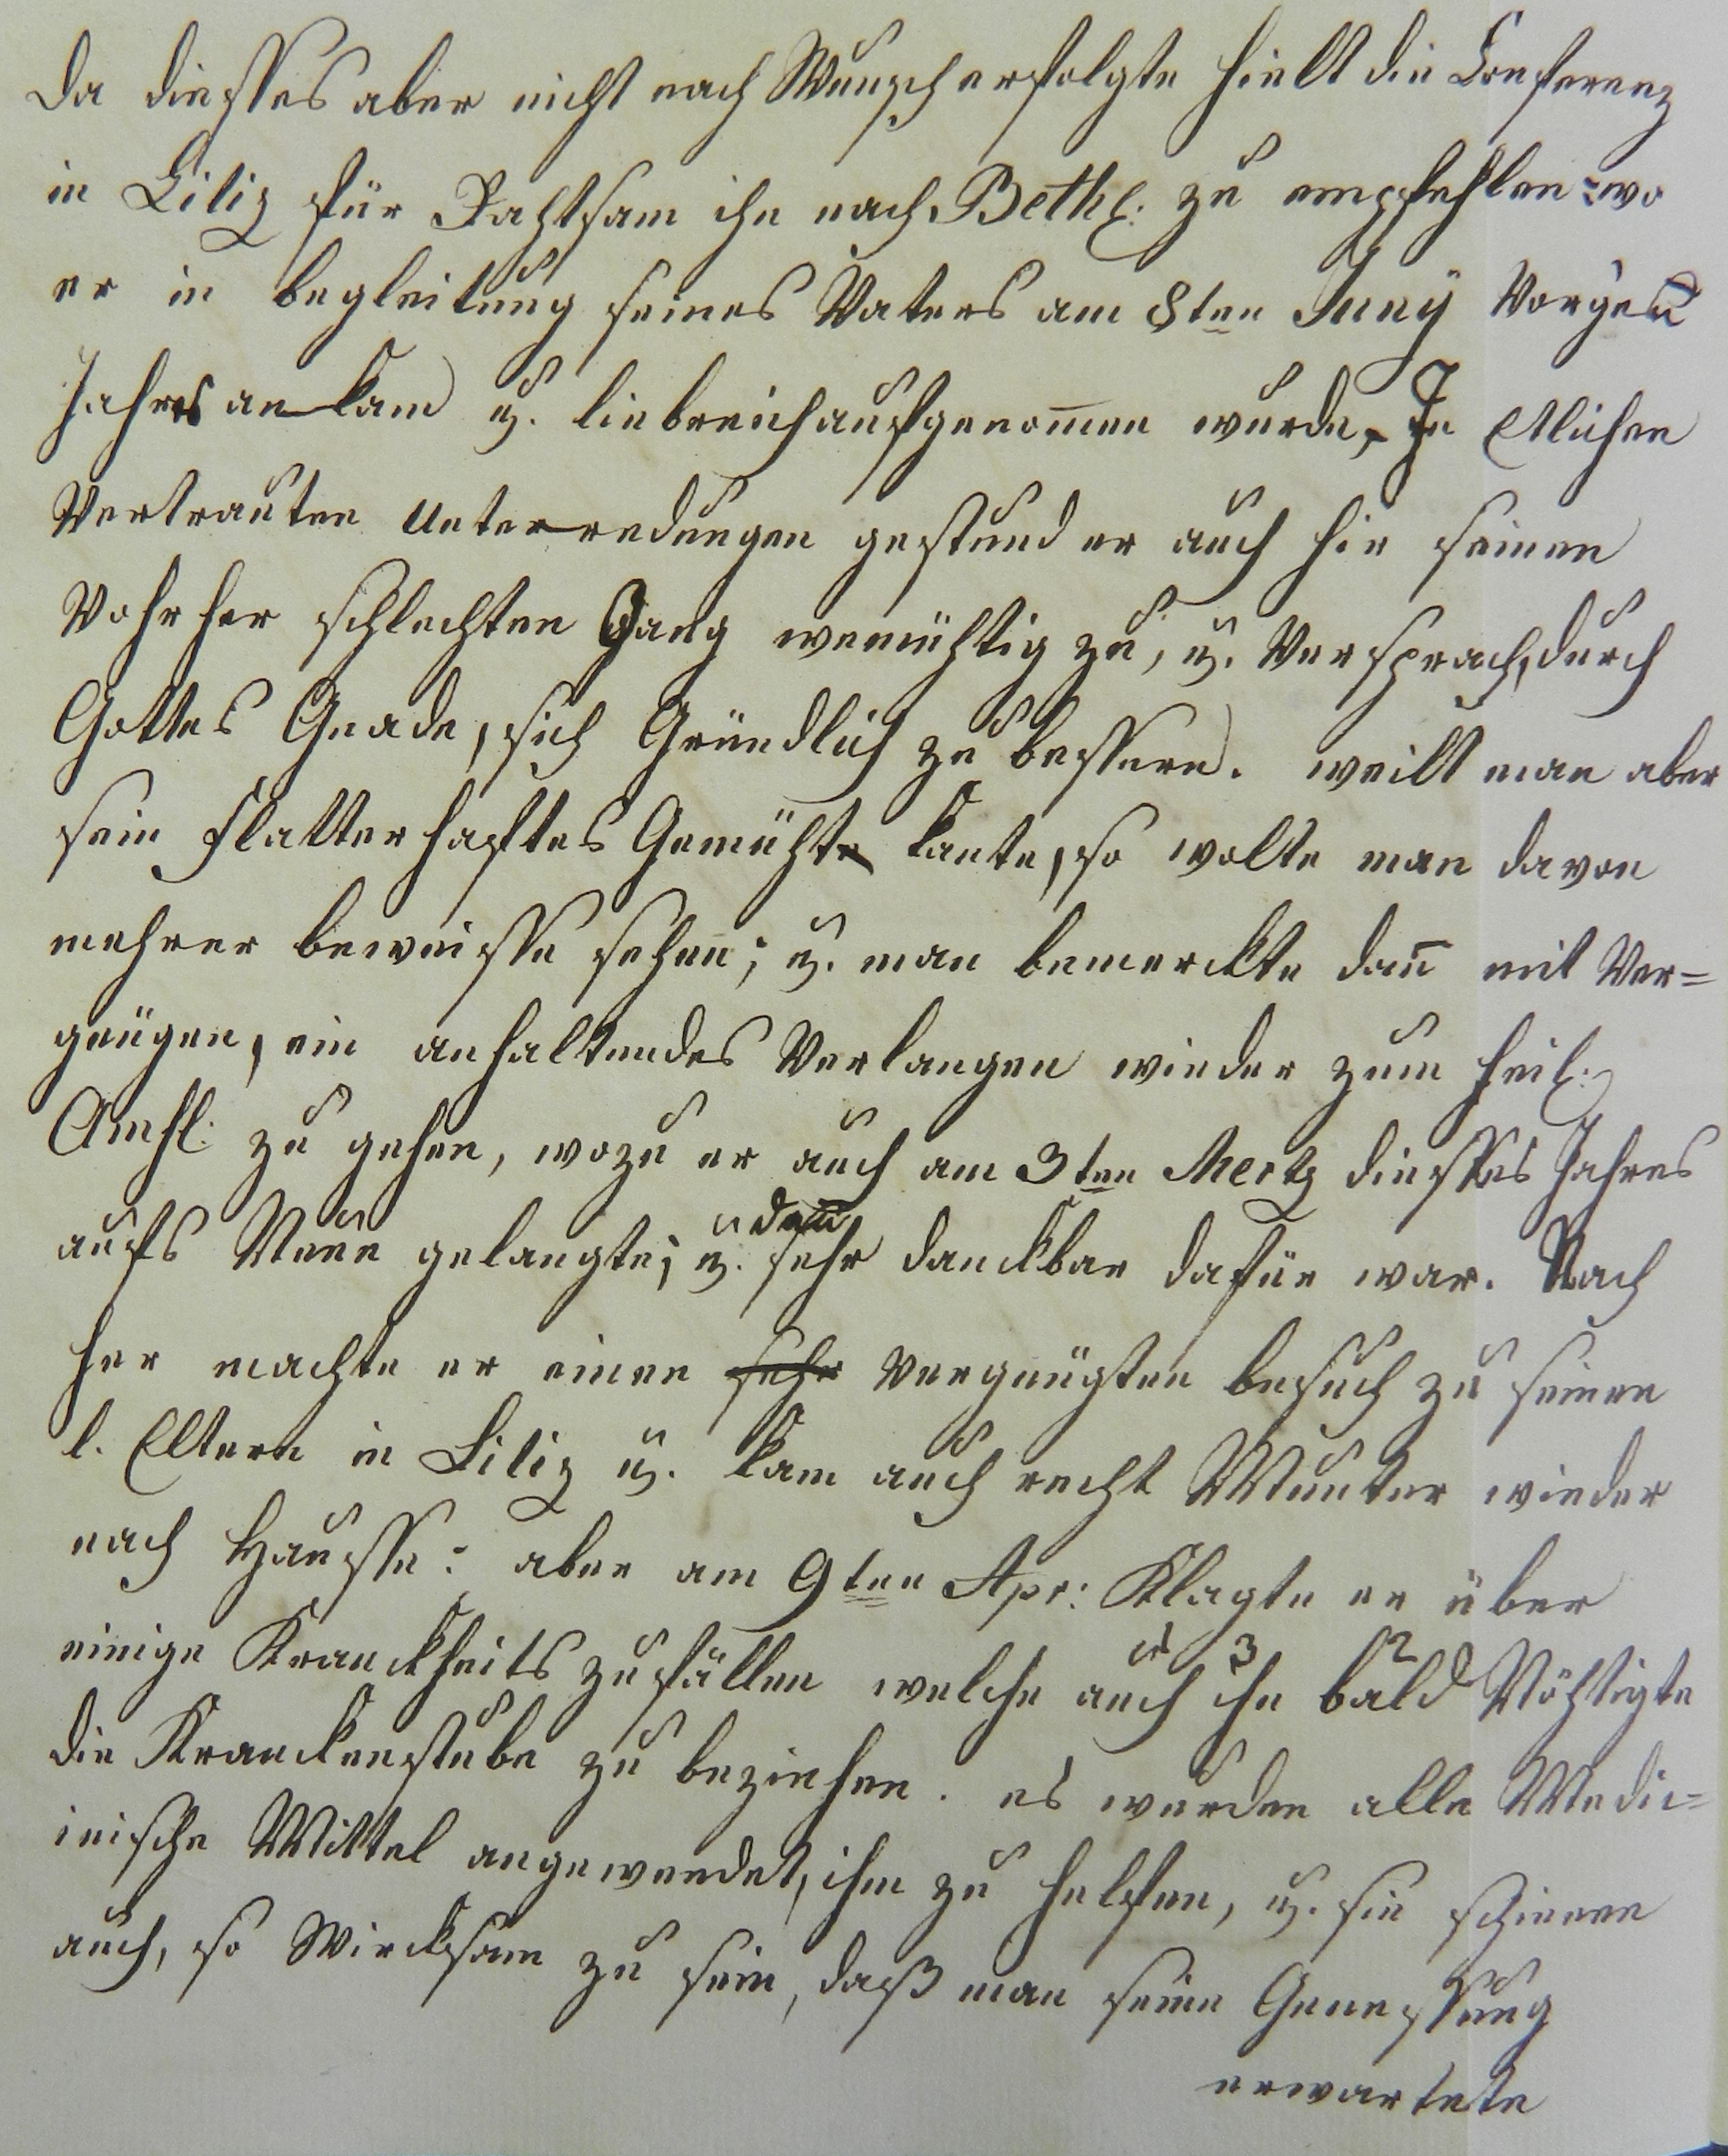 Da diesses aber nicht nach Wunsch erfolgte hielt die Conferenz
in Litiz für Rahtsam ihn nach Bethl: zu empfehlen: wo
er in begleitung seines Vaters am 8ten Juny Voriges
Jahres an kam u. liebreich aufgenom̄en wurde, In Etlichen
Vertrauten Unterredungen gestund er auch hie seinen
Vohrher schlechten Gang wemühtig zu, u. Versprach, durch
Gottes Gnade, sich Gründlich zu bessern. weill man aber
sein Flatterhaftes Gemüht kante, so wolte man davon
mehrer beweisse sehen; u. man bemerckte dan̄ mit Ver=
gnügen, ein anhaltendes Verlangen wieder zum heil:
Abmhl: zu gehen, wozu er auch am 3ten Mertz diesses Jahres
aufs Neue gelangte; u. dan̄ sehr danckbar dafür war. Nach
her machte er einen sehr Vergnügten besuch zu seinen
l. Eltern in Litiz u. kam auch recht Munter wieder
nach Hausse: aber am 9ten Apr: Klagte er über
einige Kranckheits zufällen welche auch ihn bald Nöhtigte
3 2
die Kranckenstube zu beziehen. es wurden alle Medic=
inische Mittel angewendet, ihm zu helfen, u. sie schienen
auch, so Wircksam zu sein, daß man seine Genessung
erwartete